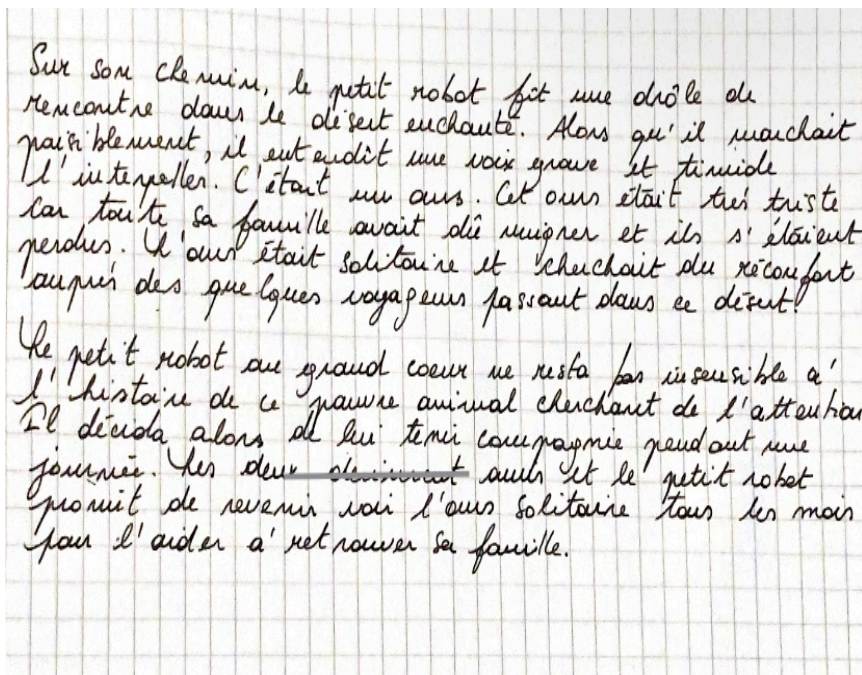 Sur son chemin, le petit robot fit une drôle de
rencontre dans le désert enchanté. Alors qu'il marchait
paisiblement, il entendit une voix grave et timide
l'interpeller. C'était un ours. Cet ours était très triste
car toute sa famille avait dû migrer et ils s'étaient
perdus. L'ours était solitaire et cherchait du réconfort
auprès des quelques voyageurs passant dans ce désert.
Le petit robot au grand coeur ne resta pas insensible à
l'histoire de ce pauvre animal cherchant de l'attention
Il décida alors de lui tenir compagnie pendant une
journée. Les deux devinrent amis et le petit robot
promit de revenir voir l'ours solitaire tous les mois
pour l'aider à retrouver sa famille.